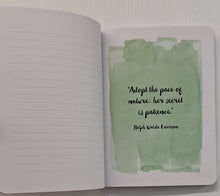 "Adopt the pace of
nature: her secret
is patience."
Ralph Waldo Emerson